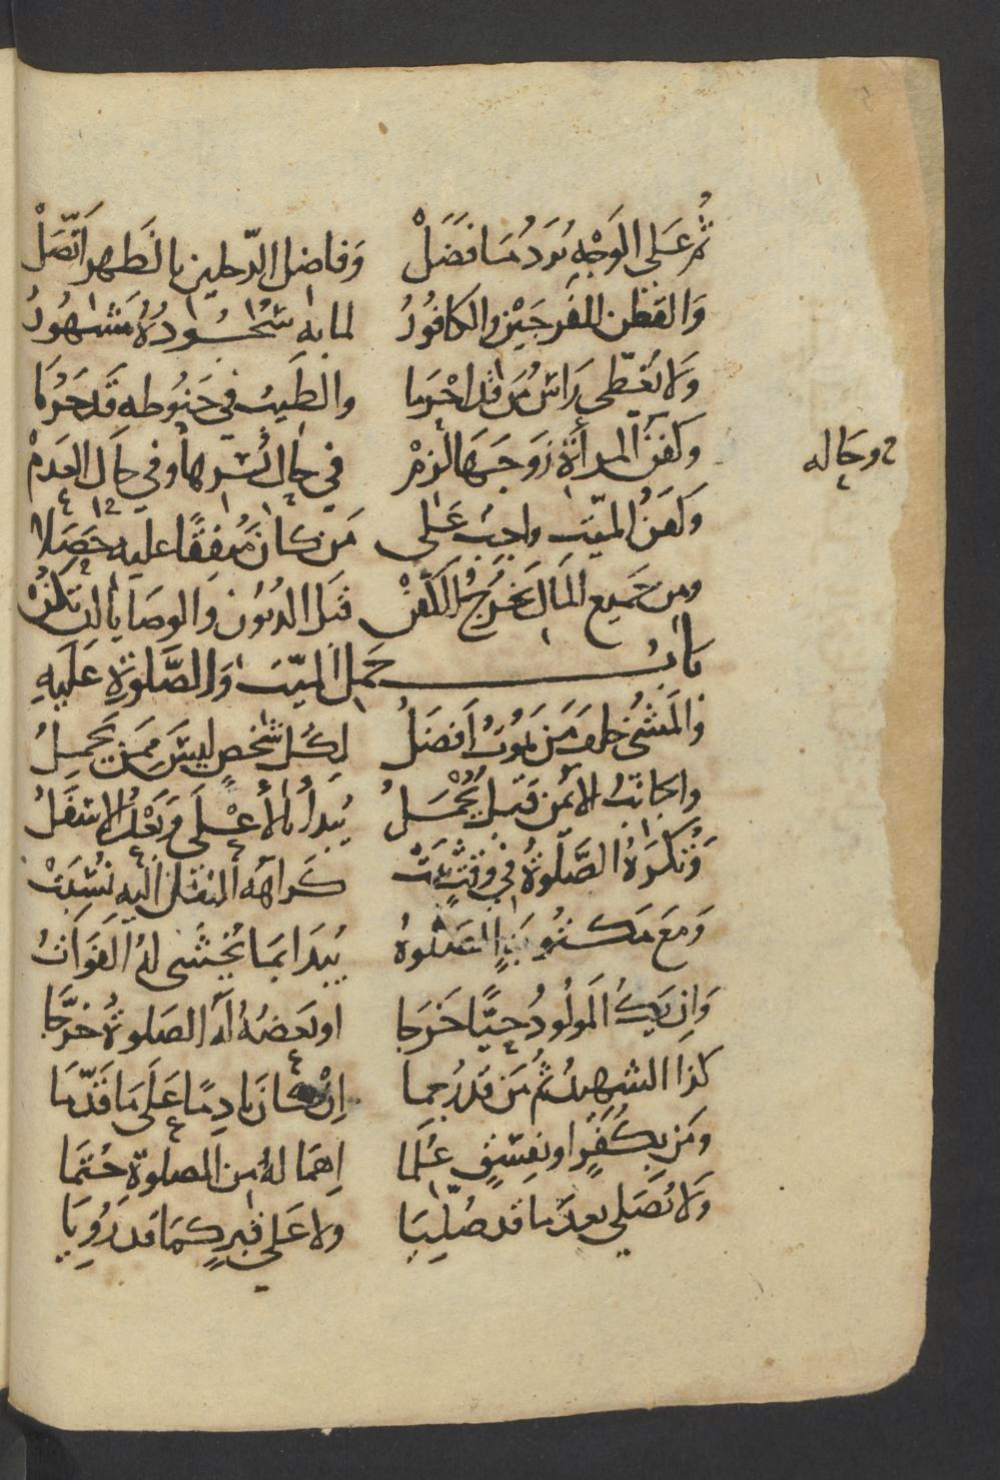 ثُمَّ عَلى الوَجْهِ يُرَدُّ مَا فَضَلْ وَفاضل الرّجلين بالظهر اتَّصَلْ
وَالقطن للفرجَيْن والكافُورُ لما به سُجُودُهُ مَشهُورُ
وَلا تُغَطّي رَاسُ مَن قد احْرَما والطيبُ في حَنُوطه قَد حَرُمَا
وكفن المرأة زوجَهَا لزمْ في حال يُسرها وفي حَال العَدمْ
وحَاله
وكفَنُ الميّت واجبٌ عَلى مَن كانَ مُنفِقًا عليه حصلا
ومن جَميع المَال يَخرُجُ الكفنْ قبل الديُون والوصَايا
بابُ حَمل الميّت وَالصَّلوةِ عَلَيهِ
والمَشيُ خلفَ مَن يَموتُ أفضَلُ لكُل شخصٍ ليسَ مِمَن يَحمِلُ
والجانبُ الأيمن قبلُ يُحْمَلُ يُبدأ بالأعْلى وَبَعْدُ الاسْفَلُ
وَتُكرَهُ الصَّلوةُ في وقتٍ كَراهَه التنفل اليه نُسِبَتْ
وَمَعَ مَكتُوبَةٍ الصَّلوهُ يُبدَا بمَا يُخشَى لهُ الفَوَاتُ
وَاِن يَكُ المَولُودُ حيًّا خَرَجا او بَعضهُ الصَلوةُ
كذا الشهيدُ ثُمَّ مَن قد رُجما اِنْ كانَ نادِمًا عَلَى مَا قَدّمَا
ومَن بِكُفرٍ او بفِسقٍ عُلِمَا اِهمَالهُ مِن الصلوةِ حُتِمَا
وَلا يُصَلي بعدَ ما قد صُلِّيَا ولا عَلى قبرٍ كَمَا قد رُوِيَا